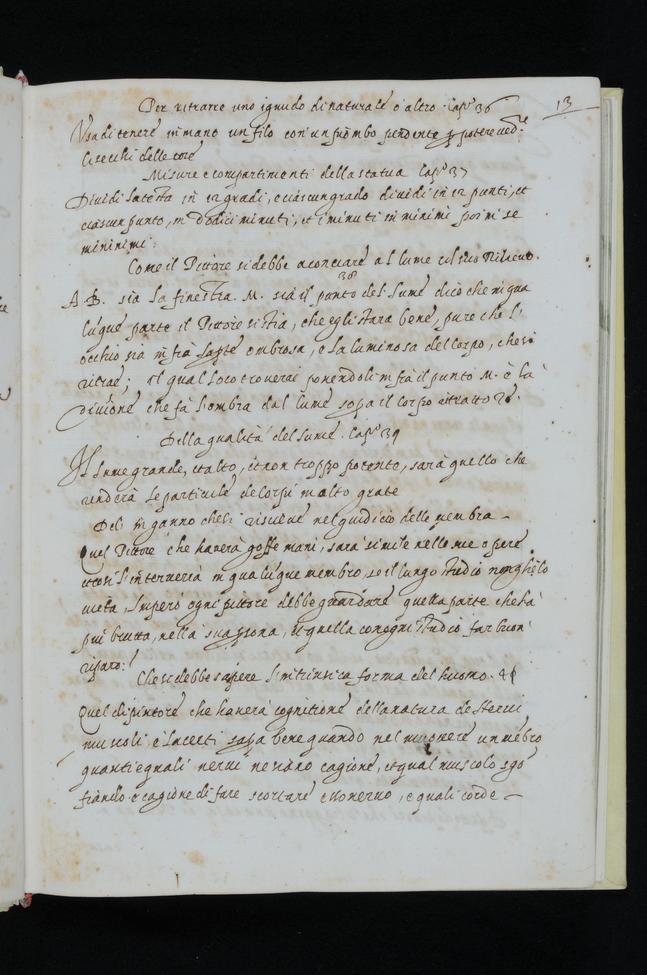 13
Per ritrarre uno ignudo di naturale o altro. Cap.º 36
Usa di tenere in mano un filo con un piombo pendente p potere ved.re
li scechi delle cose
Misure e compartimenti della statua Cap.º 37
Dividi la testa in 12 gradi, e ciascun grado dividi in 12 punti, et
ciascun punto, in dodici minuti, et i minuti in minimi poi in se
mininimi.
Come il Pittore si debbe aconciare al lume col suo Rilievo.
38
A B. sia la finestra. M. sia il punto del lume dico che in qua
lũque parte il Pittore si stia, che egli stara bene, pure che l'
occhio sia in frà la pte ombrosa, e la luminosa del corpo, che si
ritrae; il qual loco troverai ponendoti in frà il punto M. è la
Divisione che fà l'ombra dal lume sopa il corpo ritratto
Della qualità del lume. Cap.º 39
Il lume grande, et alto, et non troppo potente, sarà quello che
renderà le particule de Corpi molto grate
Del inganno che si riscieve nel giudicio delle membra
Quel Pittore che haverà goffe mani, sarà simile nelle sue opere
et così l'interverrà in qualũque membro, se il lungo studio non ghelo
vieta, Imperò ogni pittore debbe guardare quella parte che hà
più brutta, nella sua psona, et quella con ogni studio far buon
riparo:
Che si debbe sapere l'intrinsica forma del huomo. 41
Quel dipintore che haverà cognitione della natura de Nervi
muscoli e lacerti sapa bene quando nel muovere un mẽbro
quanti e quali nervi ne siano cagione, et qual muscolo sgõ
fiando è cagione di fare scortare esso nervo, e quali corde